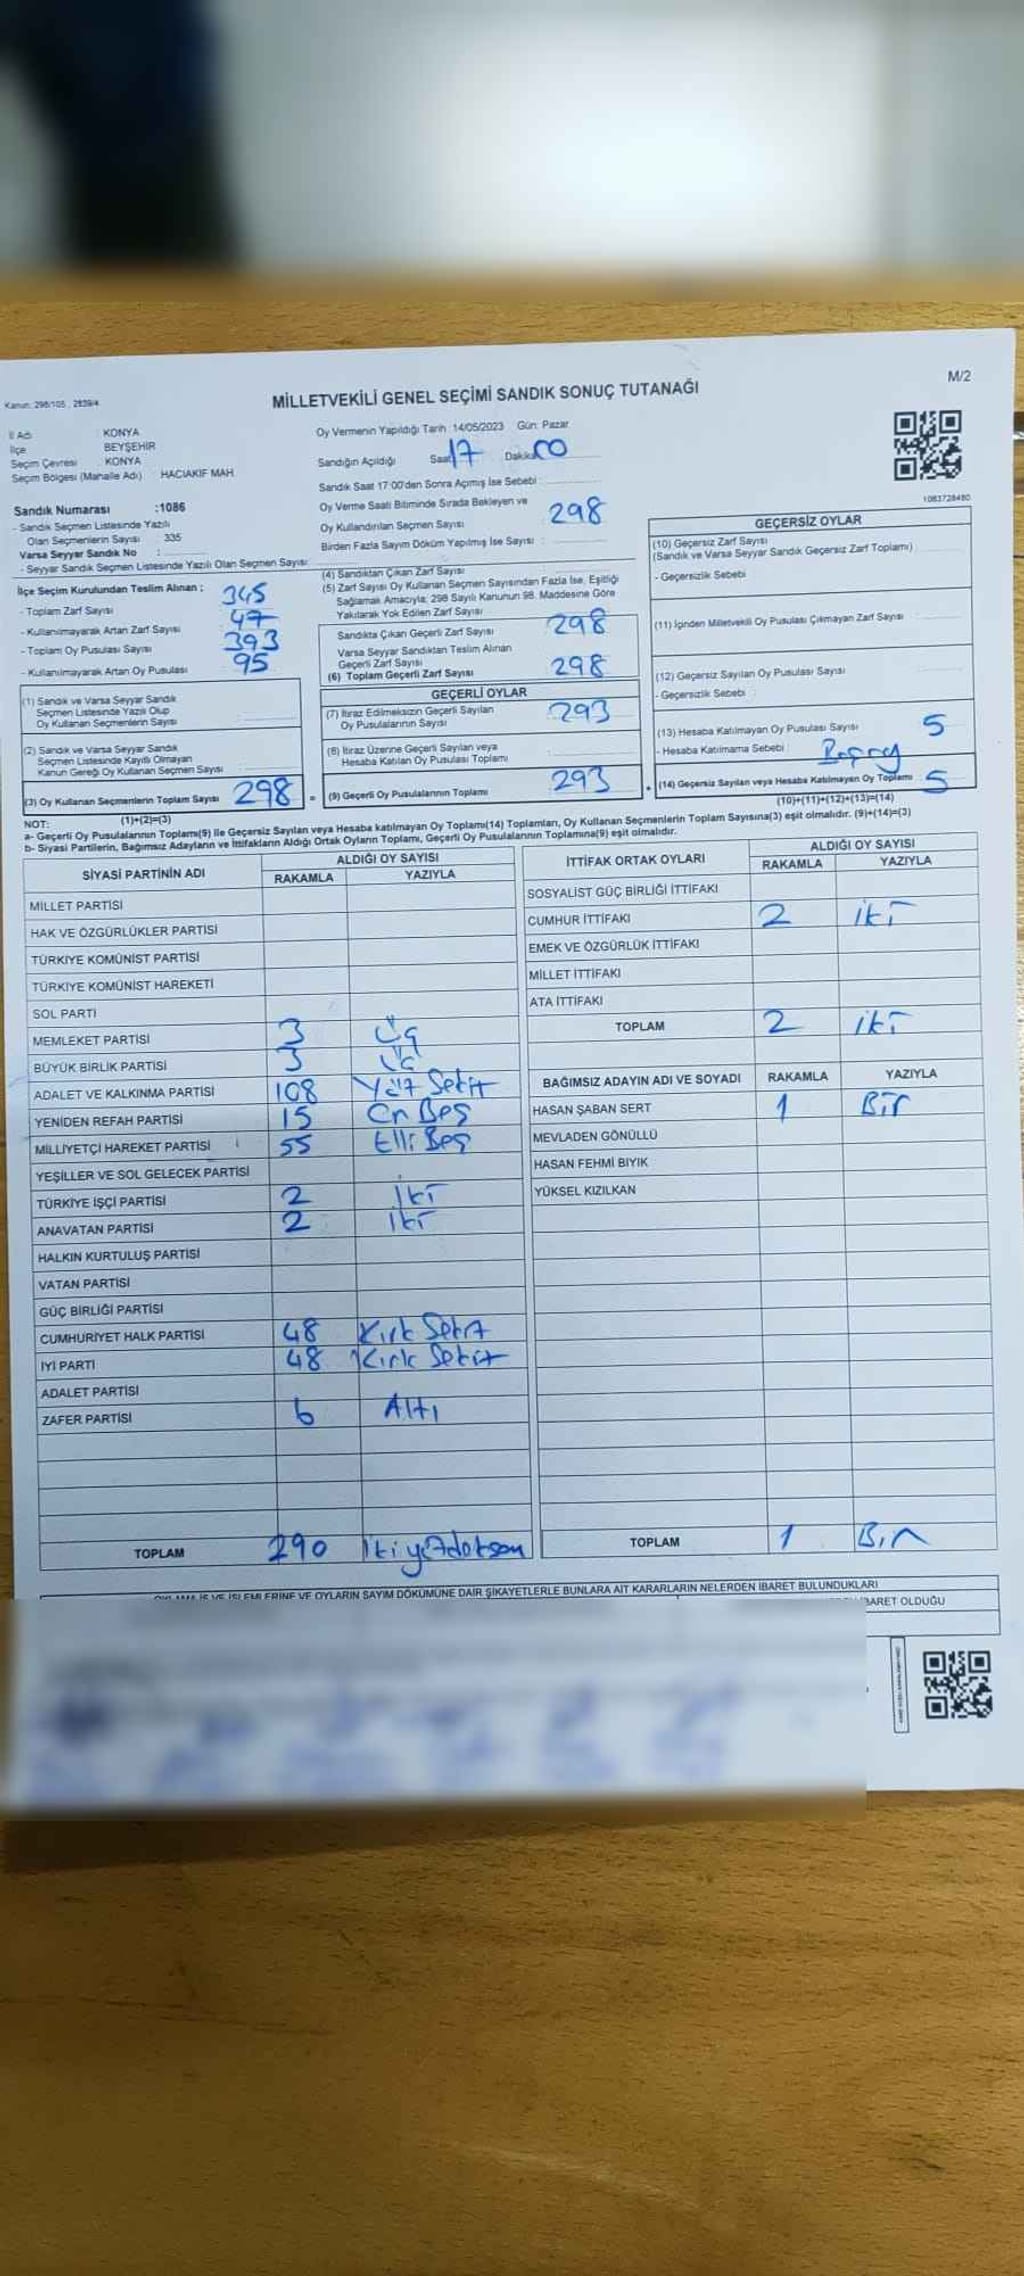 Kanun: 298/105, 2839/4
MİLLETVEKİLİ GENEL SEÇİMİ SANDIK SONUÇ TUTANAĞI
M/2
İl Adı KONYA
İlçe BEYŞEHİR
Seçim Çevresi KONYA
Seçim Bölgesi (Mahalle Adı) HACIAKİF MAH.
Oy Vermenin Yapıldığı Tarih: 14/05/2023 Gün: Pazar
Sandığın Açıldığı Saat 17 Dakika 00
Sandık Saat 17:00'den Sonra Açılmış İse Sebebi :
Oy Verme Saati Bitiminde Sırada Bekleyen ve
Oy Kullandırılan Seçmen Sayısı 298
Birden Fazla Sayım Döküm Yapılmış İse Sayısı :
1083728480
Sandık Numarası :1086
- Sandık Seçmen Listesinde Yazılı
Olan Seçmenlerin Sayısı : 335
Varsa Seyyar Sandık No :
- Seyyar Sandık Seçmen Listesinde Yazılı Olan Seçmen Sayısı
İlçe Seçim Kurulundan Teslim Alınan ;
- Toplam Zarf Sayısı 345
- Kullanılmayarak Artan Zarf Sayısı 47
- Toplam Oy Pusulası Sayısı 393
- Kullanılmayarak Artan Oy Pusulası 95
(1) Sandık ve Varsa Seyyar Sandık
Seçmen Listesinde Yazılı Olup
Oy Kullanan Seçmenlerin Sayısı :
(2) Sandık ve Varsa Seyyar Sandık
Seçmen Listesinde Kayıtlı Olmayan
Kanun Gereği Oy Kullanan Seçmen Sayısı :
(3) Oy Kullanan Seçmenlerin Toplam Sayısı 298
(1)+(2)=(3)
(4) Sandıktan Çıkan Zarf Sayısı
(5) Zarf Sayısı Oy Kullanan Seçmen Sayısından Fazla İse, Eşitliği
Sağlamak Amacıyla, 298 Sayılı Kanunun 98. Maddesine Göre
Yakılarak Yok Edilen Zarf Sayısı
Sandıkta Çıkan Geçerli Zarf Sayısı 298
Varsa Seyyar Sandıktan Teslim Alınan
Geçerli Zarf Sayısı
(6) Toplam Geçerli Zarf Sayısı 298
GEÇERLİ OYLAR
(7) İtiraz Edilmeksizin Geçerli Sayılan
Oy Pusulalarının Sayısı 293
(8) İtiraz Üzerine Geçerli Sayılan veya
Hesaba Katılan Oy Pusulası Toplamı
= (9) Geçerli Oy Pusulalarının Toplamı 293
GEÇERSİZ OYLAR
(10) Geçersiz Zarf Sayısı
(Sandık ve Varsa Seyyar Sandık Geçersiz Zarf Toplamı)
- Geçersizlik Sebebi
(11) İçinden Milletvekili Oy Pusulası Çıkmayan Zarf Sayısı
(12) Geçersiz Sayılan Oy Pusulası Sayısı
- Geçersizlik Sebebi :
(13) Hesaba Katılmayan Oy Pusulası Sayısı 5
- Hesaba Katılmama Sebebi :
+ (14) Geçersiz Sayılan veya Hesaba Katılmayan Oy Toplamı 5
(10)+(11)+(12)+(13)=(14)
NOT:
a- Geçerli Oy Pusulalarının Toplamı(9) ile Geçersiz Sayılan veya Hesaba katılmayan Oy Toplamı(14) Toplamları, Oy Kullanan Seçmenlerin Toplam Sayısına(3) eşit olmalıdır. (9)+(14)=(3)
b- Siyasi Partilerin, Bağımsız Adayların ve İttifakların Aldığı Ortak Oyların Toplamı, Geçerli Oy Pusulalarının Toplamına(9) eşit olmalıdır.
SİYASİ PARTİNİN ADI ALDIĞI OY SAYISI
RAKAMLA YAZIYLA
MİLLET PARTİSİ
HAK VE ÖZGÜRLÜKLER PARTİSİ
TÜRKİYE KOMÜNİST PARTİSİ
TÜRKİYE KOMÜNİST HAREKETİ
SOL PARTİ
MEMLEKET PARTİSİ 3 Üç
BÜYÜK BİRLİK PARTİSİ 3 Üç
ADALET VE KALKINMA PARTİSİ 108 Yüz Sekiz
YENİDEN REFAH PARTİSİ 15 On Beş
MİLLİYETÇİ HAREKET PARTİSİ 55 Elli Beş
YEŞİLLER VE SOL GELECEK PARTİSİ
TÜRKİYE İŞÇİ PARTİSİ 2 İki
ANAVATAN PARTİSİ 2 İki
HALKIN KURTULUŞ PARTİSİ
VATAN PARTİSİ
GÜÇ BİRLİĞİ PARTİSİ
CUMHURİYET HALK PARTİSİ 48 Kırk Sekiz
İYİ PARTİ 48 Kırk Sekiz
ADALET PARTİSİ
ZAFER PARTİSİ 6 Altı
TOPLAM 290 İkiyüzdoksan
İTTİFAK ORTAK OYLARI ALDIĞI OY SAYISI
RAKAMLA YAZIYLA
SOSYALİST GÜÇ BİRLİĞİ İTTİFAKI
CUMHUR İTTİFAKI 2 iki
EMEK VE ÖZGÜRLÜK İTTİFAKI
MİLLET İTTİFAKI
ATA İTTİFAKI
TOPLAM 2 iki
BAĞIMSIZ ADAYIN ADI VE SOYADI RAKAMLA YAZIYLA
HASAN ŞABAN SERT 1 Bir
MEVLADEN GÖNÜLLÜ
HASAN FEHMİ BIYIK
YÜKSEL KIZILKAN
TOPLAM 1 Bir
İŞ VE İŞLEMLERİNE VE OYLARIN SAYIM DÖKÜMÜNE DAİR ŞİKAYETLERLE BUNLARA AİT KARARLARIN NELERDEN İBARET BULUNDUKLARI
İBARET OLDUĞU